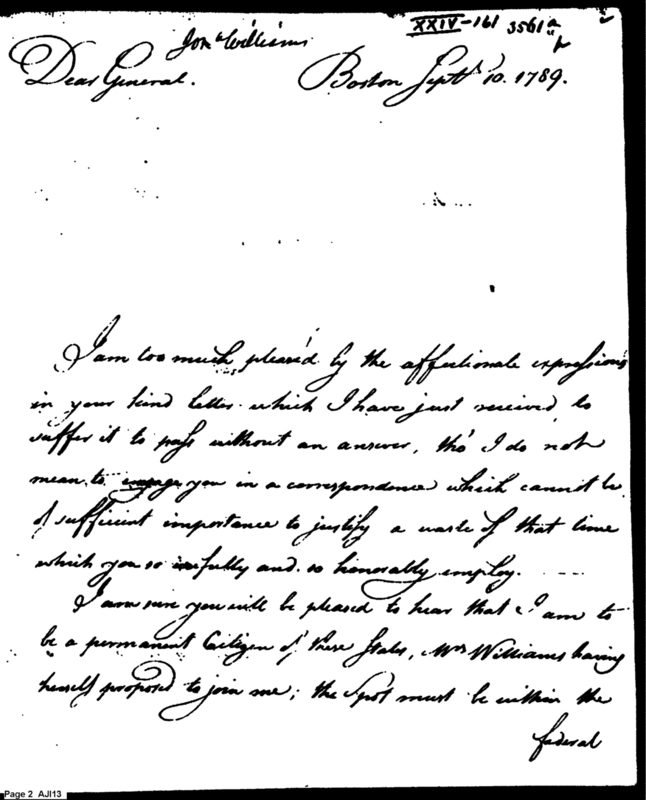 XXIV-161 3561 a
Jon a Williams
Dear General. Boston Septr 10. 1789.
I am too much pleas'd by the affectionate expressions
in your kind letter which I have just received, to
suffer it to pass without an answer, tho' I do not
mean to engage you in a correspondence which cannot be
of sufficient importance to justify a waste of that time
which you so usefully and so honorably employ.
I am sure you will be pleased to hear that I am to
be a permanent Citizen of these States, Mrs Williams having
herself proposed to join me; the Spot must be within the
federal
Page 2 AJI13